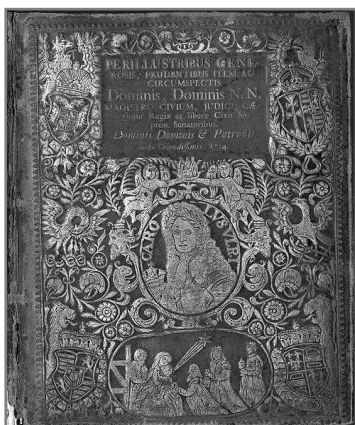 PERILLUSTRIBUS GENE
ROSIS, PRUDENTIBUS ITEM, AC
CIRCUMSPECTIS
Dominis, Dominis N. N.
MAGISTRO CIVIUM, JUDICI, CÆ
Regiæ ac liberæ Civit. So
pron. Senatoribus.
Dominis Dominis & Patronis
Colendissimis. 1714
CARO LVS